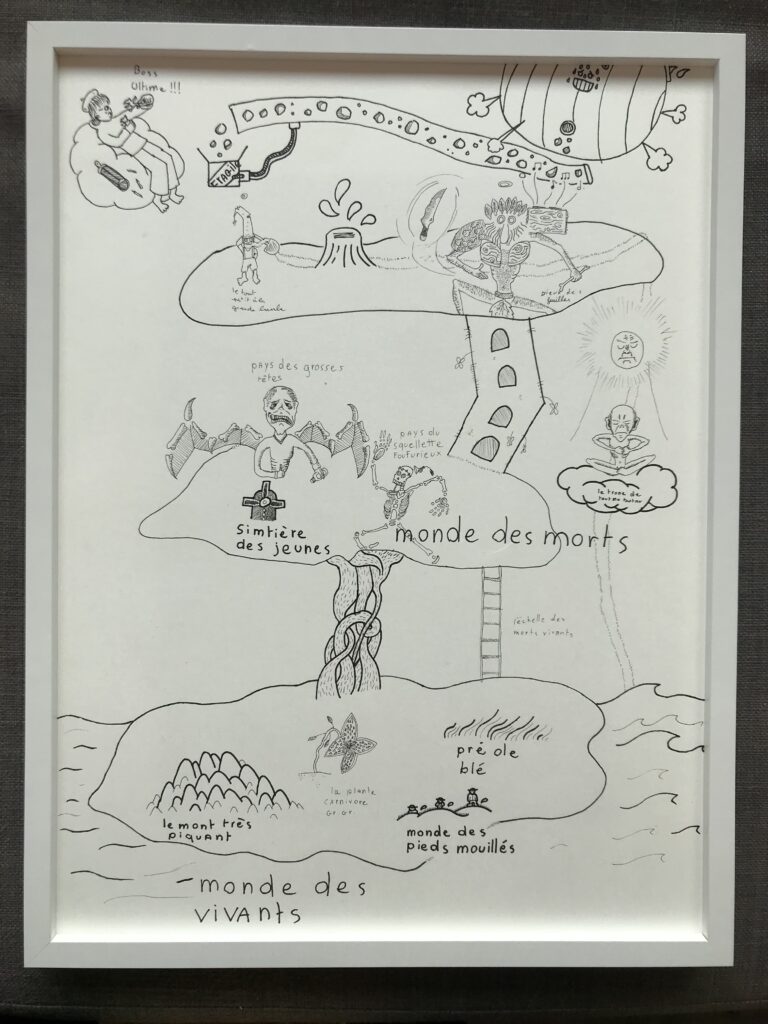 Boss
Ultime !!!
FRAGILE
le tout
petit à la
grande
dieu des
feuilles
pays des grosses
têtes
pays du
squelette
foufurieux
simtière
des jeunes
monde des morts
le trone de
l'échelle des
morts vivants
pré ole
blé
la plante
carnivore
Gr.Gr.
le mont très
piquant
monde des
pieds mouillés
monde des
vivants